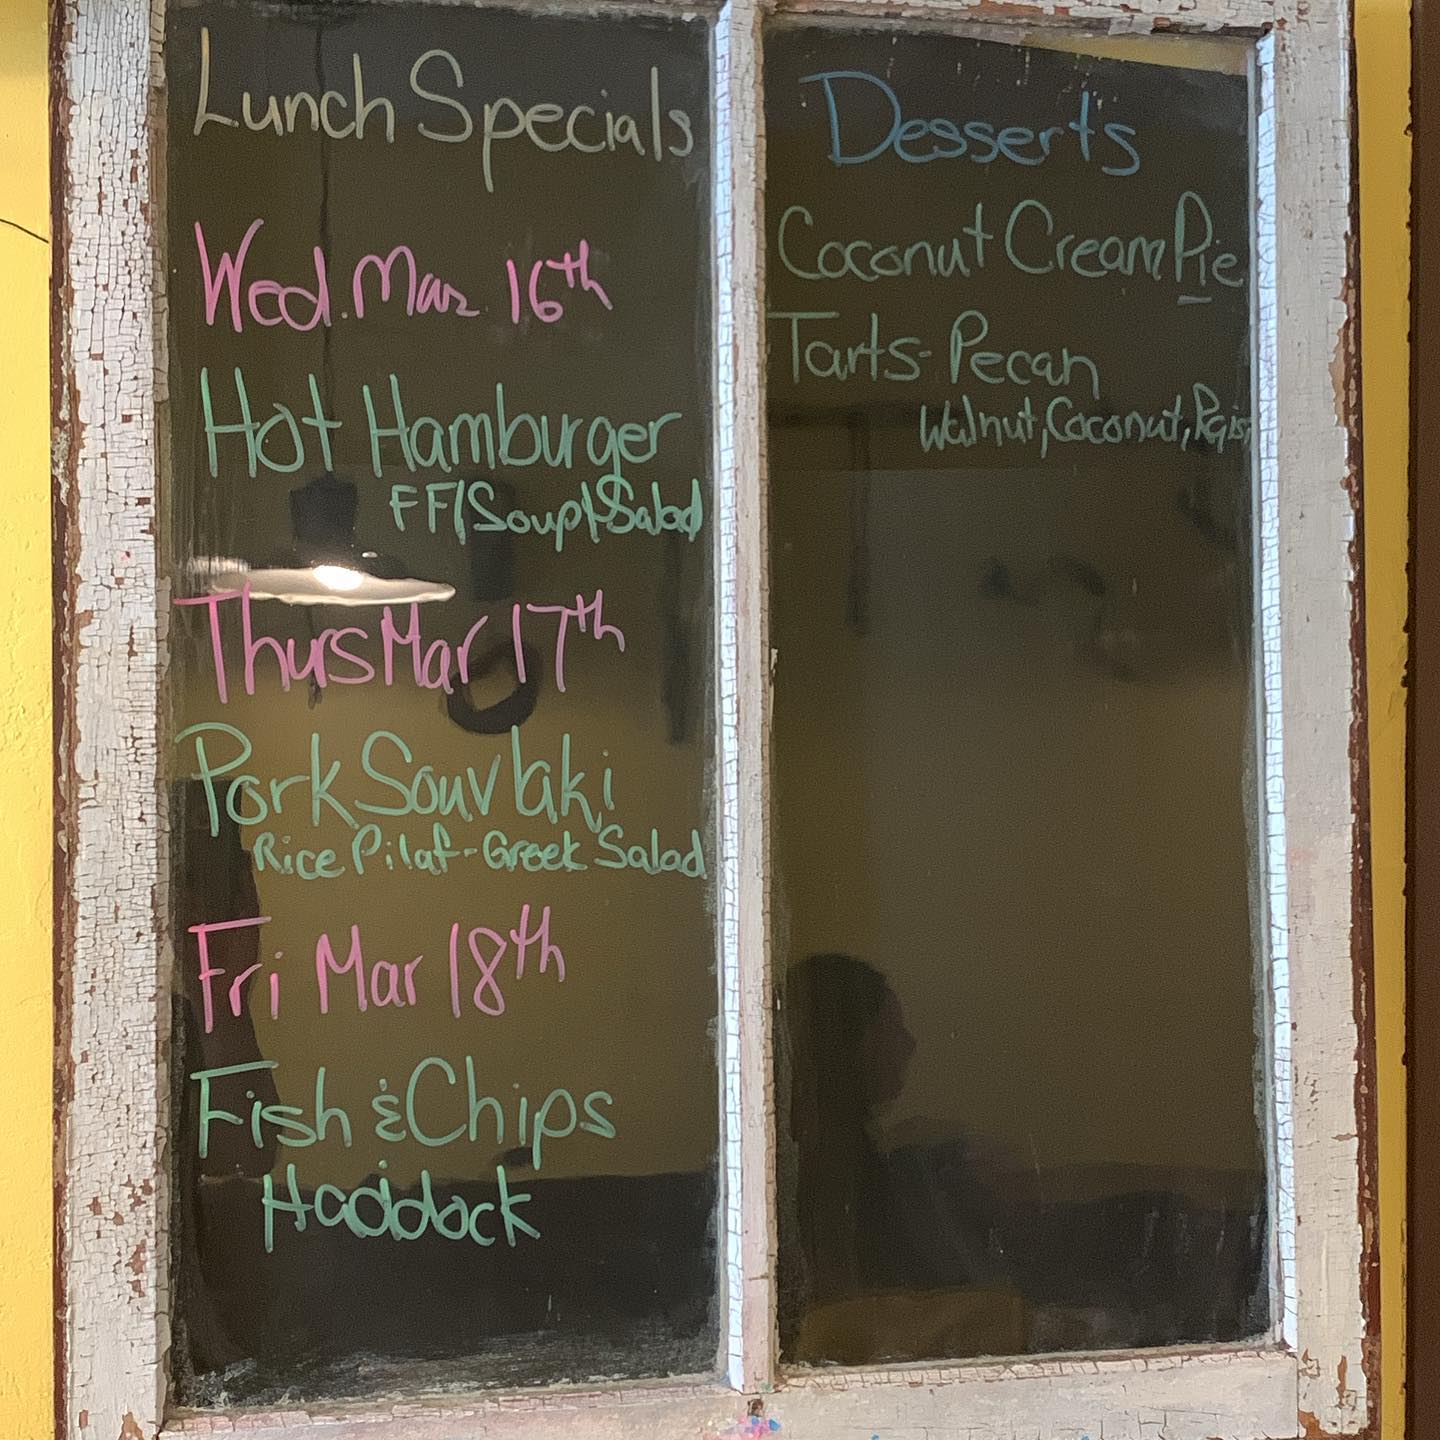 Lunch Specials
Wed. Mar. 16th
Hot Hamburger
FF/Soup/Salad
Thurs Mar 17th
Pork Souvlaki
Rice Pilaf - Greek Salad
Fri Mar 18th
Fish & Chips
Haddock
Desserts
Coconut Cream Pie
Tarts - Pecan
Walnut, Coconut,